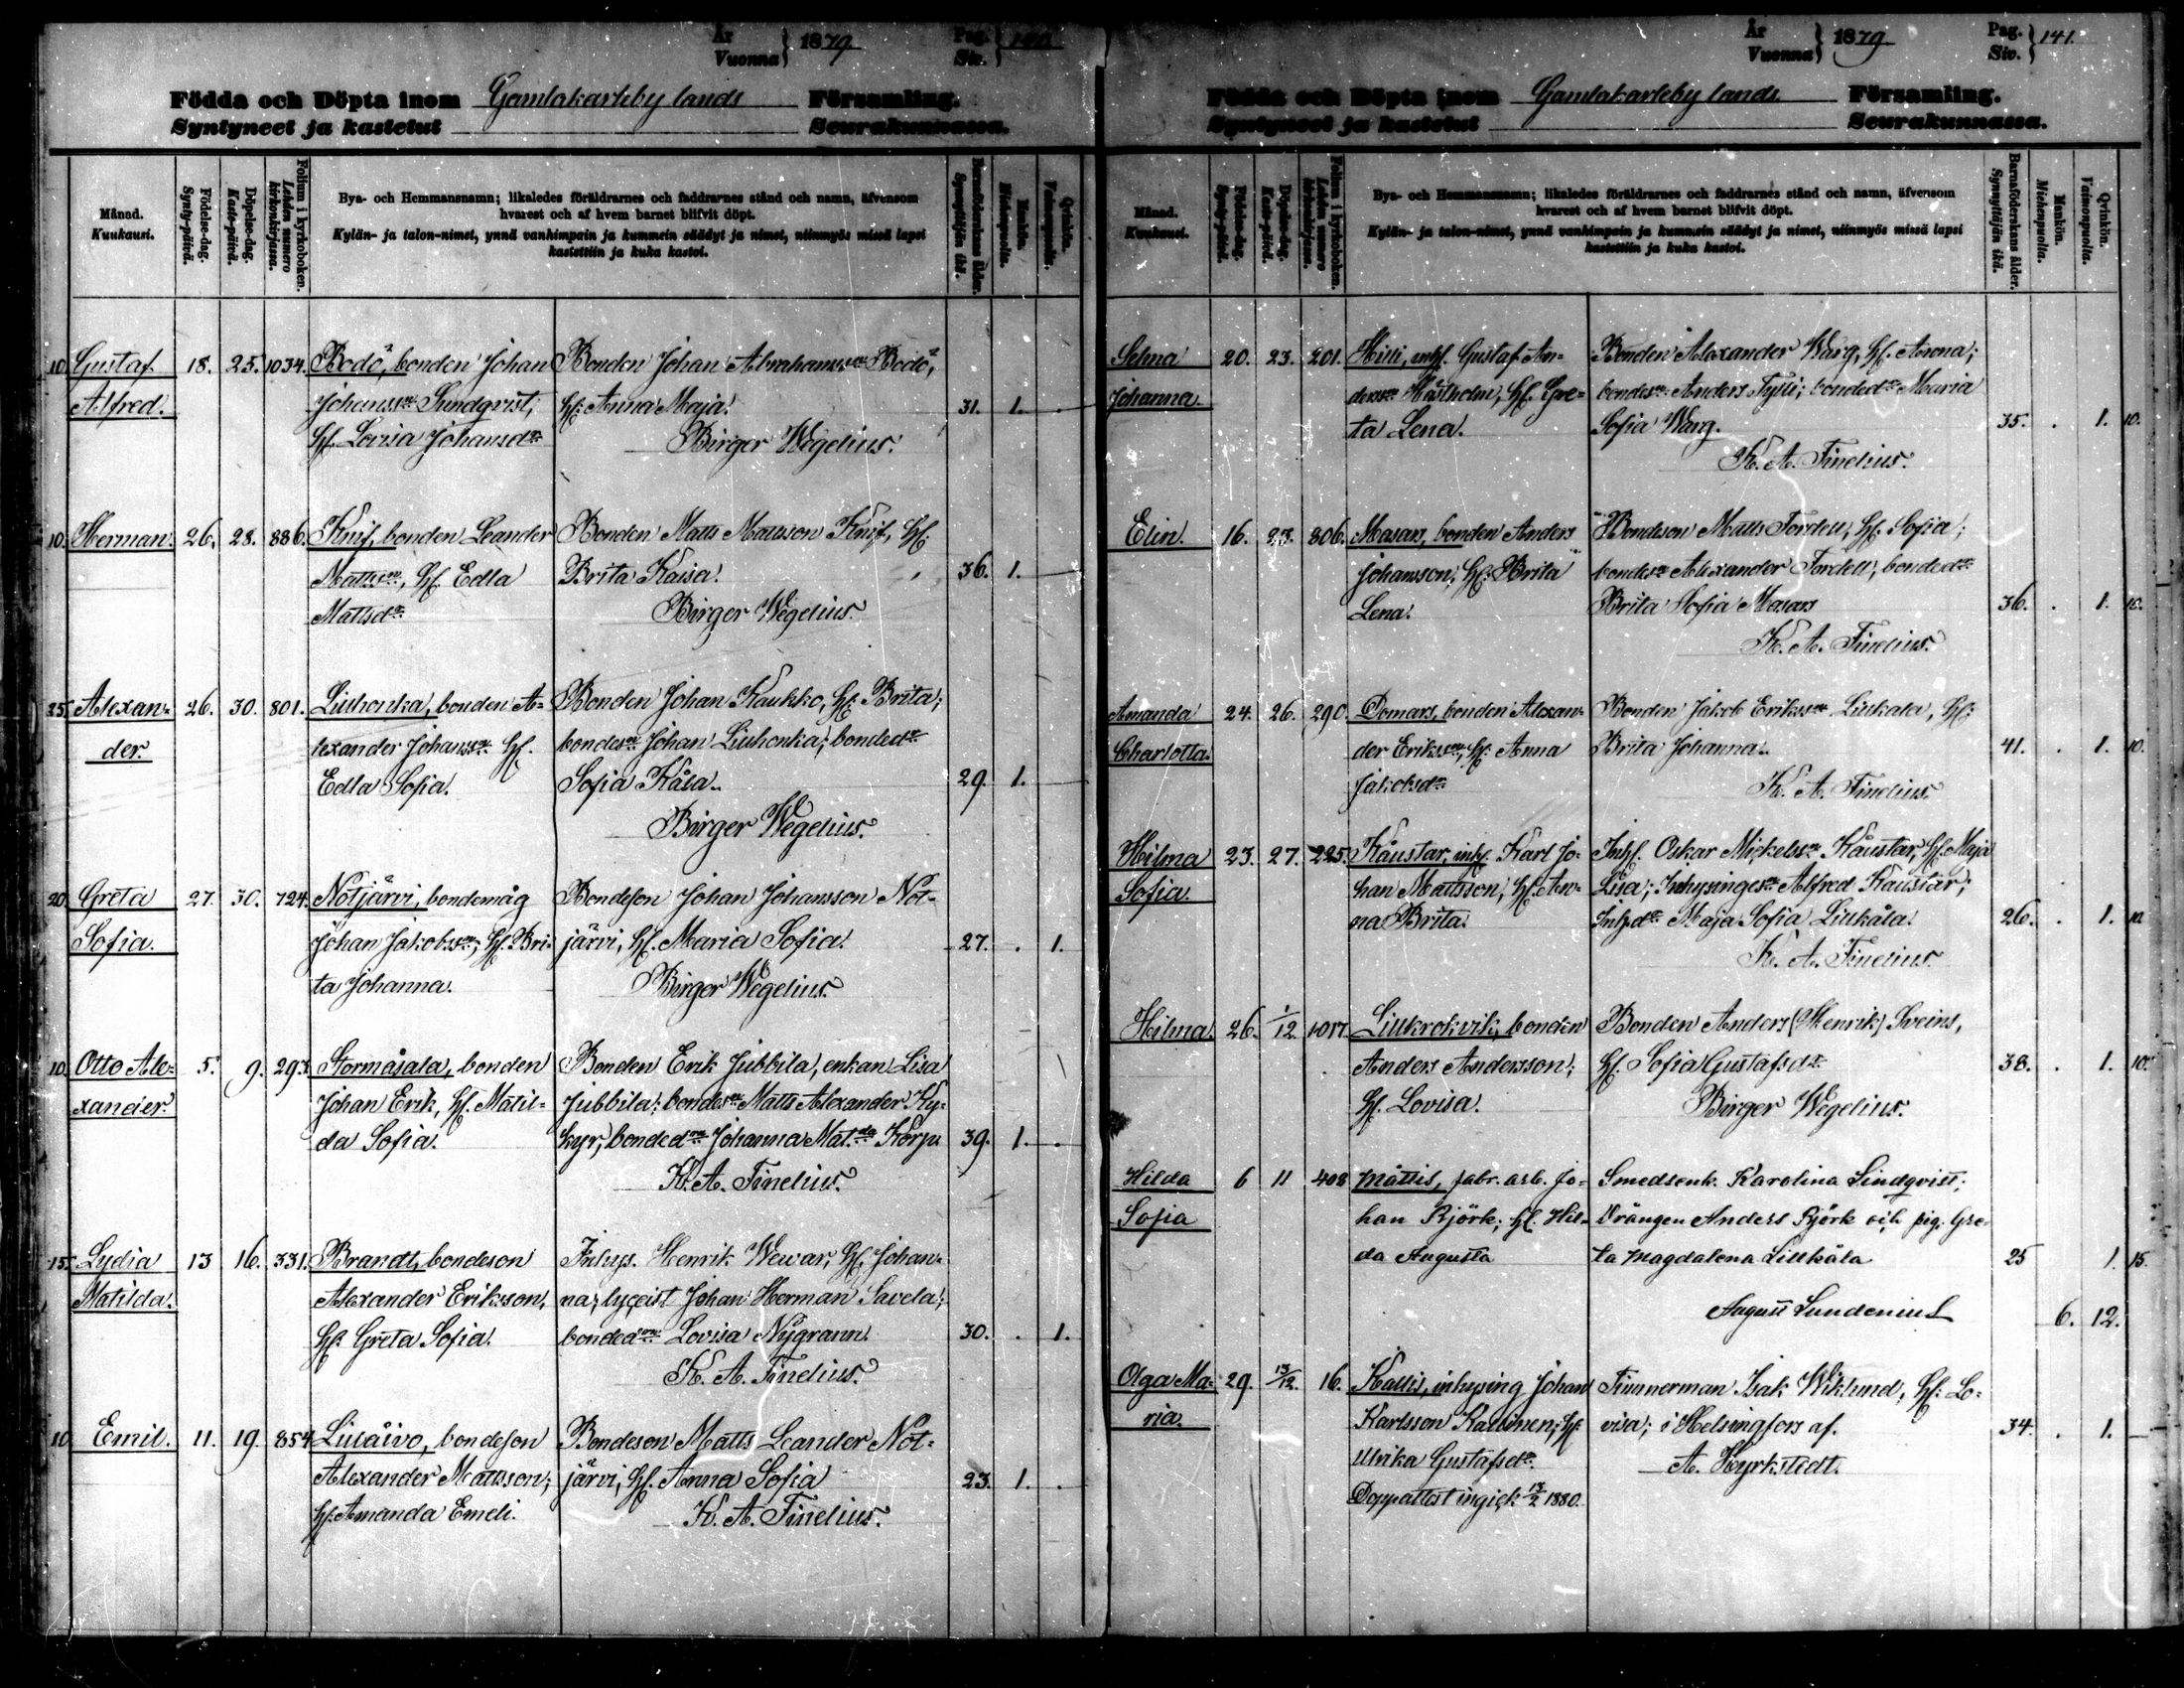 År
Vuonna } 1879
Pag.
Siv. } 140
Födda och Döpta inom Gamlakarleby lands Församling.
Syntyneet ja kastetut Seurakunnassa.
Månad.
Kuukausi.
Födelse-dag.
Synty-päivä.
Döpelse-dag.
Kaste-päivä.
Folium i kyrkoboken.
Lehden numero
kirkonkirjassa.
Bya- och Hemmansnamn; likaledes föräldrarnes och faddrarnes stånd och namn, äfvensom
hvarest och af hvem barnet blifvit döpt.
Kylän- ja talon-nimet, ynnä vanhimpain ja kummein säädyt ja nimet, niinmyös missä lapsi
kastettiin ja kuka kastoi.
Barnaföderskans ålder.
Synnyttäjän ikä.
Mankön.
Miehenpuolia.
Qvinkön.
Vaimonpuolia.
10. Gustaf 18. 25. 1034. Bodö, bonden Johan Bonden Johan Abrahamss:n Bodö,
Alfred. Johanss:n Sundqvist, H. Anna Maja. 31. 1.
H. Lovisa Johansd:r Birger Wegelius.
10. Herman. 26. 28. 886. Knif, bonden Leander Bonden Matts Mattsson Knif, H.
Matts:n, H. Edla Brita Kaisa. 36. 1.
Mattsd:r Birger Wegelius.
25. Alexan- 26. 30. 801. Liuhonka, bonden A- Bonden Johan Kaukko, H. Brita;
der. lexander Johanss:n H. bondes:n Johan Liuhonka; bonded:r
Edla Sofia. Sofia Kåla. 29. 1.
Birger Wegelius.
20. Greta 27. 30. 724. Nötjärvi, bondemåg Bondeson Johan Johansson Nöt-
Sofia. Johan Jakobss:n; H. Bri- järvi, H. Maria Sofia. 27. . 1.
ta Johanna. Birger Wegelius.
10. Otto Ale- 5. 9. 293. Stormåsala, bonden Bonden Erik Jubbila, enkan Lisa
xander. Johan Erik, H. Matil- Jubbila; bondes:n Matts Alexander Ky-
da Sofia. kyr, bonded:rn Johanna Mat:da Korpi 39. 1.
K. A. Finelius.
15. Lydia 13 16. 331. Brandt, bondeson Inhys. Henrik Wewar, H. Johan-
Matilda. Alexander Eriksson, na; lyceist Johan Herman Savela;
H. Greta Sofia. bonded:rn Lovisa Nygrann. 30. . 1.
K. A. Finelius.
10 Emil. 11. 19. 854 Liuåivo, bondeson Bondeson Matts Leander Nöt-
Alexander Mattsson; järvi, H. Anna Sofia 23. 1. .
H. Amanda Emeli. K. A. Finelius.
År
Vuonna } 1879
Pag.
Siv. } 141.
Födda och Döpta inom Gamlakarleby lands Församling.
Syntyneet ja kastetut Seurakunnassa.
Månad.
Kuukausi.
Födelse-dag.
Synty-päivä.
Döpelse-dag.
Kaste-päivä.
Folium i kyrkoboken.
Lehden numero
kirkonkirjassa.
Bya- och Hemmansnamn; likaledes föräldrarnes och faddrarnes stånd och namn, äfvensom
hvarest och af hvem barnet blifvit döpt.
Kylän- ja talon-nimet, ynnä vanhimpain ja kummein säädyt ja nimet, niinmyös missä lapsi
kastettiin ja kuka kastoi.
Barnaföderskans ålder.
Synnyttäjän ikä.
Mankön.
Miehenpuolia.
Qvinkön.
Vaimonpuolia.
Selma 20. 23. 201. Hilli, inh. Gustaf An- Bonden Alexander Warg, H. Anna;
Johanna. derss:n Hästholm, H. Gre- bondes:n Anders Tylli; bonded:r Maria
ta Lena. Sofia Warg. 35. . 1. 10.
K. A. Finelius.
Elin. 16. 23. 806. Masars, bonden Anders Bondeson Matts Tordell, H. Sofia;
Johansson; H. Brita bondes:n Alexander Tordell, bonded:r
Lena. Brita Sofia Masars 36. . 1. 10.
K. A. Finelius.
Amanda 24. 26. 290. Domars, bonden Alexan- Bonden Jakob Erikss:n Liukala, H.
Charlotta. der Erikss:n, H. Anna Brita Johanna. 41. . 1. 10.
Jakobsd:r K. A. Finelius.
Hilma 23. 27. 225. Kåustar, inh. Karl Jo- Inh. Oskar Mickelss:n Kåustar, H. Maja
Sofia. han Mattsson, H. An- Lisa; Inhysinges:n Alfred Kåustar;
na Brita. Inh.d:r Maja Sofia Liukåla. 26. . 1. 10
K. A. Finelius.
Hilma. 26. 1/12 1017. Lillkrokvik, bonden Bonden Anders (Henrik) Sveins,
Anders Andersson; H. Sofia Gustafsd:r 38. . 1. 10.
H. Lovisa. Birger Wegelius.
Hilda 6 11 408 Mattis, fabr. arb. Jo- Smedsenk. Karolina Lindqvist;
Sofia han Björk; H. Hil- Drängen Anders Björk och pig. Gre-
da Augusta ta Magdalena Lillkåla 25 1. 15.
August Sundenius 6. 12.
Olga Ma- 29. 13/12. 16. Kallis, inhysing Johan Timmerman Isak Wiklund, H. Lo-
ria. Karlsson Kallinen; H. visa; i Helsingfors af. 34. . 1.
Ulrika Gustafsd:r A. Hyrkstedt.
Dopp attest ingick 13/2 1880.